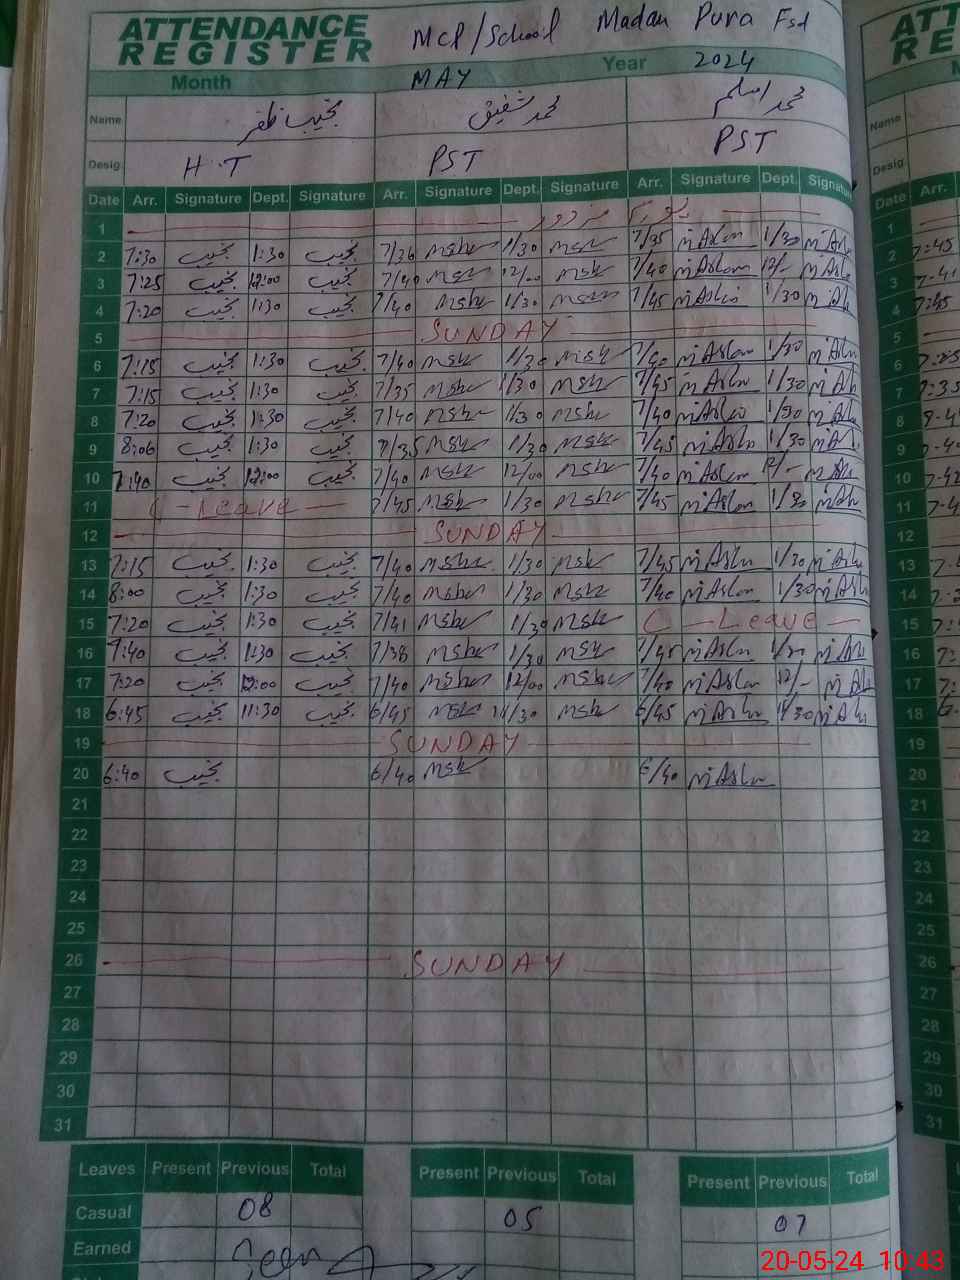 ATTENDANCE REGISTER MCP/School Madan Pura Fsd
Month MAY Year 2024
Name نجیب ظفر محمد شفیق محمد اسلم
Desig. H.T PST PST
Date Arr. Signature Dept. Signature Arr. Signature Dept. Signature Arr. Signature Dept. Signature
1 یوم مزدور
2 7:30 نجیب 1:30 نجیب 7/36 msk 1/30 msk 7/35 m Aslam 1/30 m Aslam
3 7:25 نجیب 12:00 نجیب 7/40 msk 12/00 msk 7/40 m Aslam 12/- m Aslam
4 7:20 نجیب 1:30 نجیب 7/40 msk 1/30 msk 7/45 m Aslam 1/30 m Aslam
5 SUNDAY
6 7:15 نجیب 1:30 نجیب 7/40 msk 1/30 msk 7/40 m Aslam 1/30 m Aslam
7 7:15 نجیب 1:30 نجیب 7/35 msk 1/30 msk 7/45 m Aslam 1/30 m Aslam
8 7:20 نجیب 1:30 نجیب 7/40 msk 1/30 msk 7/40 m Aslam 1/30 m Aslam
9 8:06 نجیب 1:30 نجیب 7/35 msk 1/30 msk 7/45 m Aslam 1/30 m Aslam
10 7:40 نجیب 12:00 نجیب 7/40 msk 12/00 msk 7/40 m Aslam 12/- m Aslam
11 C-Leave 7/45 msk 1/30 msk 7/45 m Aslam 1/30 m Aslam
12 SUNDAY
13 7:15 نجیب 1:30 نجیب 7/40 msk 1/30 msk 7/45 m Aslam 1/30 m Aslam
14 8:00 نجیب 1:30 نجیب 7/40 msk 1/30 msk 7/40 m Aslam 1/30 m Aslam
15 7:20 نجیب 1:30 نجیب 7/41 msk 1/30 msk C-Leave
16 7:40 نجیب 1:30 نجیب 7/38 msk 1/30 msk 7/45 m Aslam 1/30 m Aslam
17 7:20 نجیب 12:00 نجیب 7/40 msk 12/00 msk 7/40 m Aslam 12/- m Aslam
18 6:45 نجیب 11:30 نجیب 6/45 msk 11/30 msk 6/45 m Aslam 11/30 m Aslam
19 SUNDAY
20 6:40 نجیب 6/40 msk 6/40 m Aslam
21
22
23
24
25
26 SUNDAY
27
28
29
30
31
Leaves Present Previous Total Present Previous Total Present Previous Total
Casual 08 05 07
Earned Seen
20-05-24 10:43